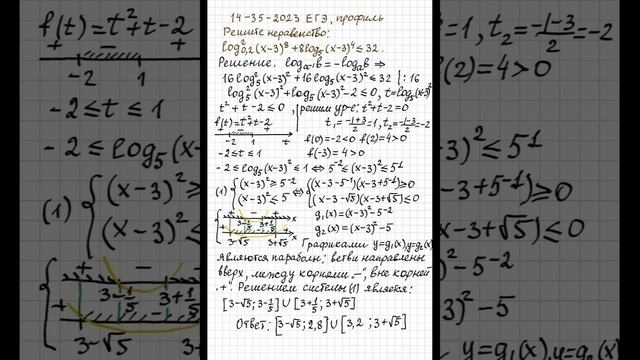 14-35-2023 ЕГЭ, профиль
Решите неравенство:
log²₀,₂(x-3)⁸+8log₅(x-3)⁴≤32.
Решение. log_a⁻¹ b = -log_a b ⇒
16log₅²(x-3)²+16log₅(x-3)²≤32 |:16
log₅²(x-3)²+log₅(x-3)²-2≤0, t=log₅(x-3)²
t²+t-2≤0, решим ур-е: t²+t-2=0
f(t)=t²+t-2 t₁=(-1+3)/2=1, t₂=(-1-3)/2=-2
+ - +
-2 1 t
f(0)=-2<0 f(2)=4>0
-2≤t≤1 f(-3)=4>0
-2≤log₅(x-3)²≤1 ⇔ 5⁻²≤(x-3)²≤5¹
(1) { (x-3)²≥5⁻² ⇔ { (x-3-5⁻¹)(x-3+5⁻¹)≥0
(x-3)²≤5 (x-3-√5)(x-3+√5)≤0
g₁(x)=(x-3)²-5⁻²
g₂(x)=(x-3)²-5
+ - + x
3-1/5 3+1/5
+ - + x
3-√5 3+√5
Графиками y=g₁(x), y=g₂(x)
являются параболы; ветви направлены
вверх, между корнями „-", вне корней
„+". Решением системы (1) является:
[3-√5; 3-1/5] ∪ [3+1/5; 3+√5]
Ответ: [3-√5; 2,8] ∪ [3,2; 3+√5]